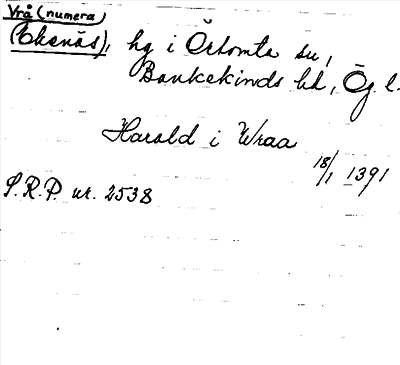 Vrå (numera
(Ekenäs), hg i Örtomta sn,
Bankekinds hd, Ög. l.
Harald i Wraa
18/1 1391
S.R.P. nr. 2538